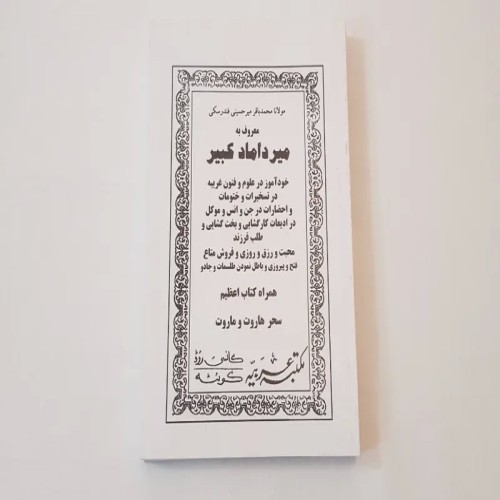 مولانا محمدباقر میرحسینی فندرسکی
معروف به
میرداماد کبیر
خودآموز در علوم و فنون غریبه
در تسخیرات و ختومات
و احضارات در جن و انس و موکل
در ادیعات کارگشایی و بخت گشایی و
طلب فرزند
محبت و رزق و روزی و فروش متاع
فتح و پیروزی و باطل نمودن طلسمات و جادو
همراه کتاب اعظیم
سحر هاروت و ماروت
مکتبه عربیه
کانسی روڈ
کوئٹہ